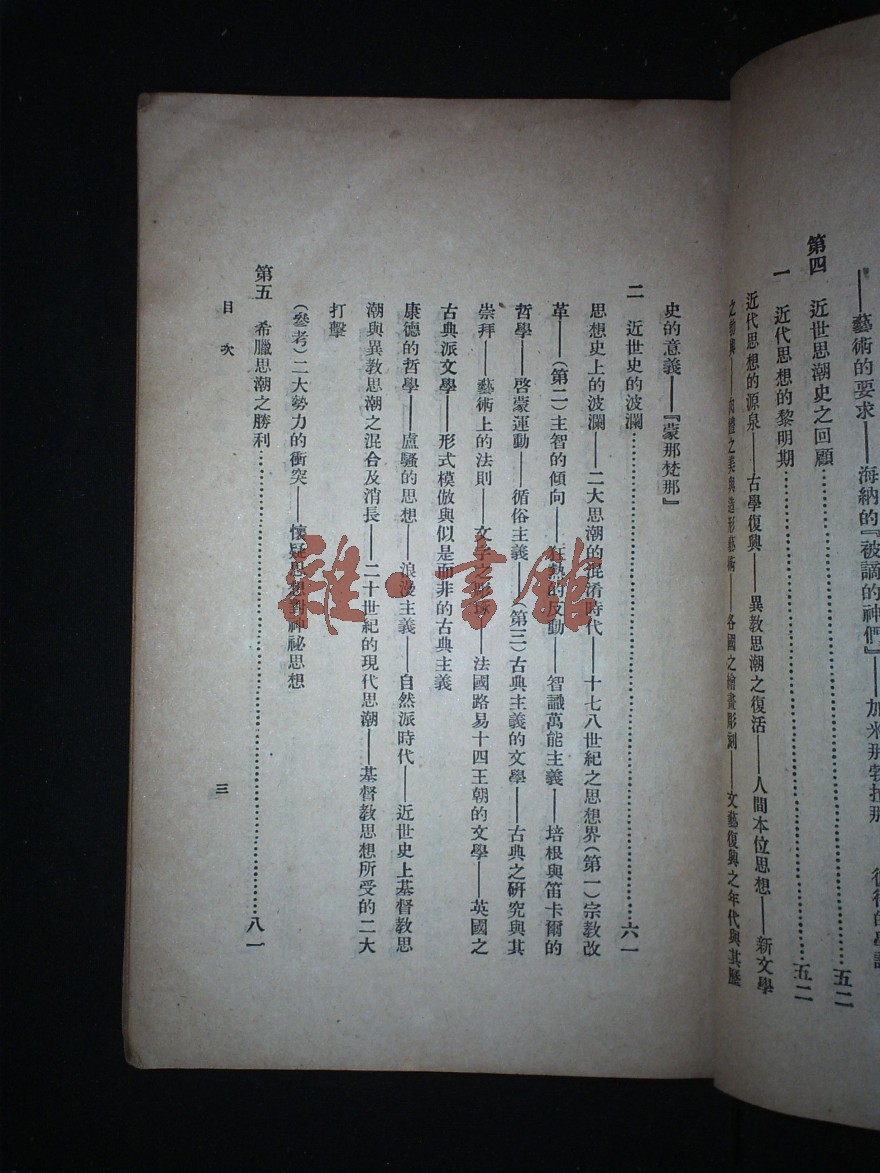 ——藝術的要求——海納的『被謫的神們』——加米那勃拉那
第四　近世思潮史之回顧……五二
一　近代思想的黎明期……五二
近代思想的源泉——古學復興——異教思潮之復活——人間本位思想——新文學
之勃興——肉體之美與造形藝術——各國之繪畫彫刻——文藝復興之年代與其歷
史的意義——『蒙那梵那』
二　近世史的波瀾……六一
思想史上的波瀾——二大思潮的混淆時代——十七八世紀之思想界(第一)宗教改
革——(第二)主智的傾向——狂熱的反動——智識萬能主義——培根與笛卡爾的
哲學——啓蒙運動——循俗主義——(第三)古典主義的文學——古典之研究與其
崇拜——藝術上的法則——文字之彫琢——法國路易十四王朝的文學——英國之
古典派文學——形式模倣與似是而非的古典主義
康德的哲學——盧騷的思想——浪漫主義——自然派時代——近世史上基督教思
潮與異教思潮之混合及消長——二十世紀的現代思潮——基督教思想所受的二大
打擊
(參考)二大勢力的衝突——懷疑思想對神祕思想
第五　希臘思潮之勝利……八一
目次
三
雜·書館